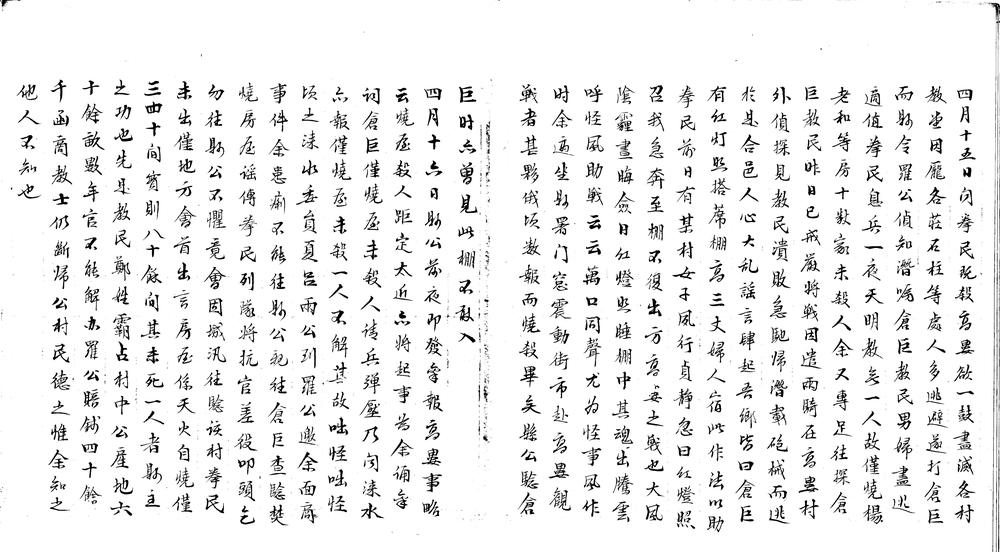 四月十五日閧拳民既殺高畧欲一鼓盡滅各村
教堂因龎各莊石柱等處人多逃避遂打倉巨
而縣令羅公偵知潛嘱倉巨教民男婦盡逃
適值拳民息兵一夜天明教無一人故僅燒楊
老和等房十數家未殺人余又專足往探倉
巨教民昨日已戒嚴將戰因遣兩騎在高畧村
外偵探見教民潰敗急馳歸潛載砲械而逃
於是合邑人心大乱謡言肆起吾鄉皆曰倉巨
有紅灯照搭蓆棚高三丈婦人宿此作法以助
拳民前日有某村女子夙行貞靜忽曰紅燈照
召我急奔至棚不復出方高畧之戰也大風
陰霾晝晦僉曰紅燈照睡棚中其魂出騰雲
呼怪風助戰云云萬口同聲尤為怪事風作
时余適坐縣署门窓震動街市赴高畧觀
戰者甚夥俄頃数報而燒殺畢矣縣公驗倉
巨时六曾見此棚不敢入
四月十六日縣公前夜即發稟報高畧事略
云燒房殺人距定太近六將起事为余诵稟
词倉巨僅燒屋未殺人请兵彈壓乃閧淶水
六報僅燒屋未殺一人不解其故咄怪咄怪
頃之淶水委員夏吕兩公到羅公邀余面商
事件余患痢不能往縣公親往倉巨查驗焚
燒房屋谣傳拳民列隊將抗官差役叩頭乞
勿往縣公不懼竟會因城汎往驗该村拳民
未出僅地方會首出言房屋係天火自燒僅
三四十間實則八十餘间其未死一人者縣主
之功也先是教民鄭姓霸占村中公產地六
十餘畝數年官不能解办羅公賠錢四十餘
千函商教士仍斷歸公村民德之惟余知之
他人不知也